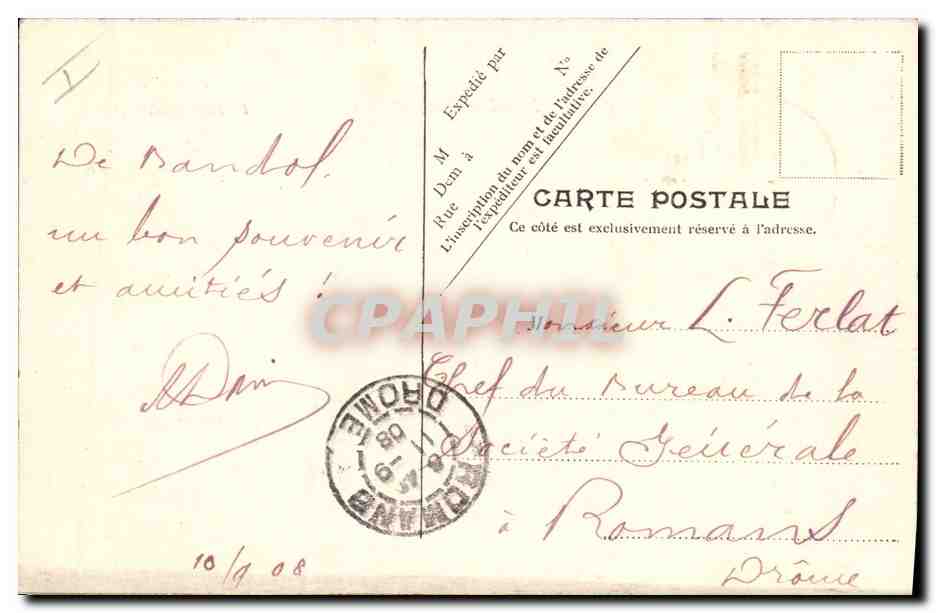 De Bandol.
un bon souvenir
et amitiés !
10/9 08
M Expedié par
Dem à
Rue N°
L'inscription du nom et de l'adresse de
l'expéditeur est facultative.
CARTE POSTALE
Ce côté est exclusivement réservé à l'adresse.
CPAPHIL
Monsieur L. Ferlat
Chef du Bureau de la
Société Générale
à Romans
Drôme
ROMANS
DROME
11 - 9
08